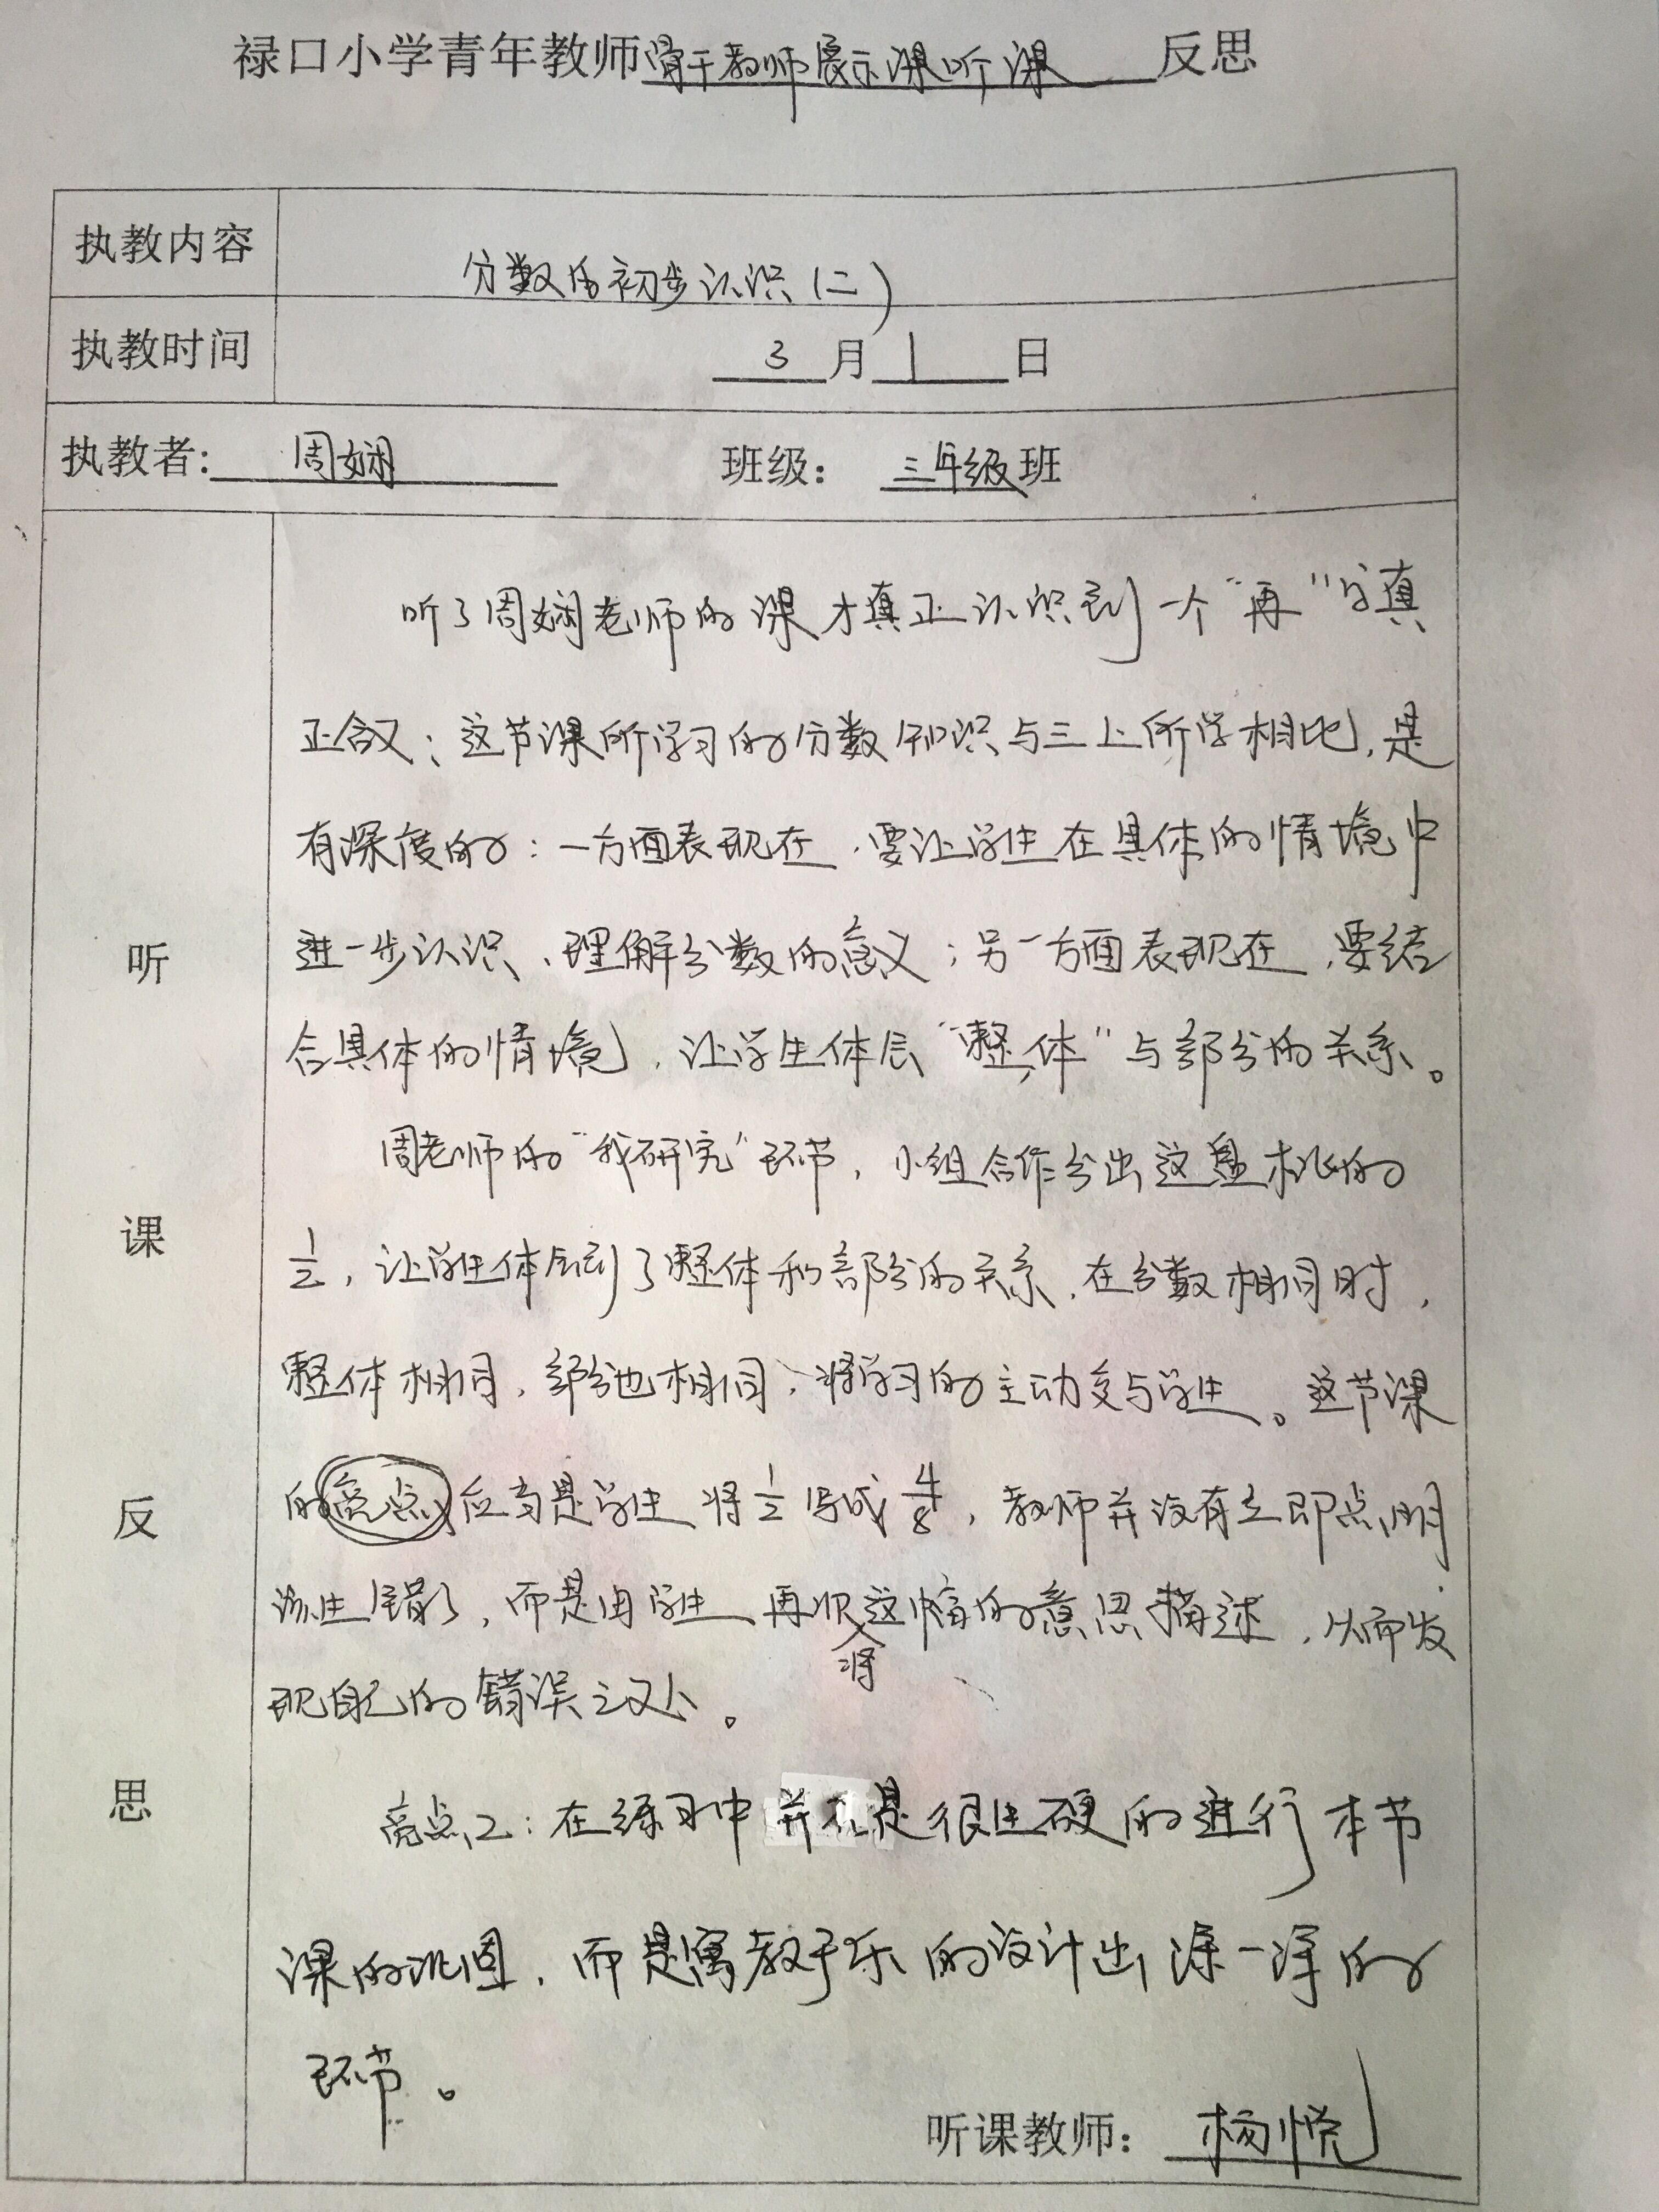 禄口小学青年教师骨干教师展示课听课反思
执教内容
分数的初步认识(二)
执教时间
3月1日
执教者: 周娴 班级: 三年级班
听课反思
听了周娴老师的课才真正认识到一个“再”的真
正含义:这节课所学习的分数知识与三上所学相比,是
有深度的:一方面表现在,要让学生在具体的情境中
进一步认识、理解分数的意义;另一方面表现在,要结
合具体的情境,让学生体会“整体”与部分的关系。
周老师的“我研究”环节,小组合作分出这盘桃的
1/2,让学生体会到了整体和部分的关系,在分数相同时,
整体相同,部分也相同,将学习的主动交与学生。这节课
的亮点应当是学生将1/2写成4/8,教师并没有立即点明
该生错了,而是由学生再次将这幅的意思描述,从而发
现自己的错误之处。
亮点2:在练习中并不是很生硬的进行本节
课的巩固,而是寓教于乐的设计出涂一涂的
环节。
听课教师: 杨悦